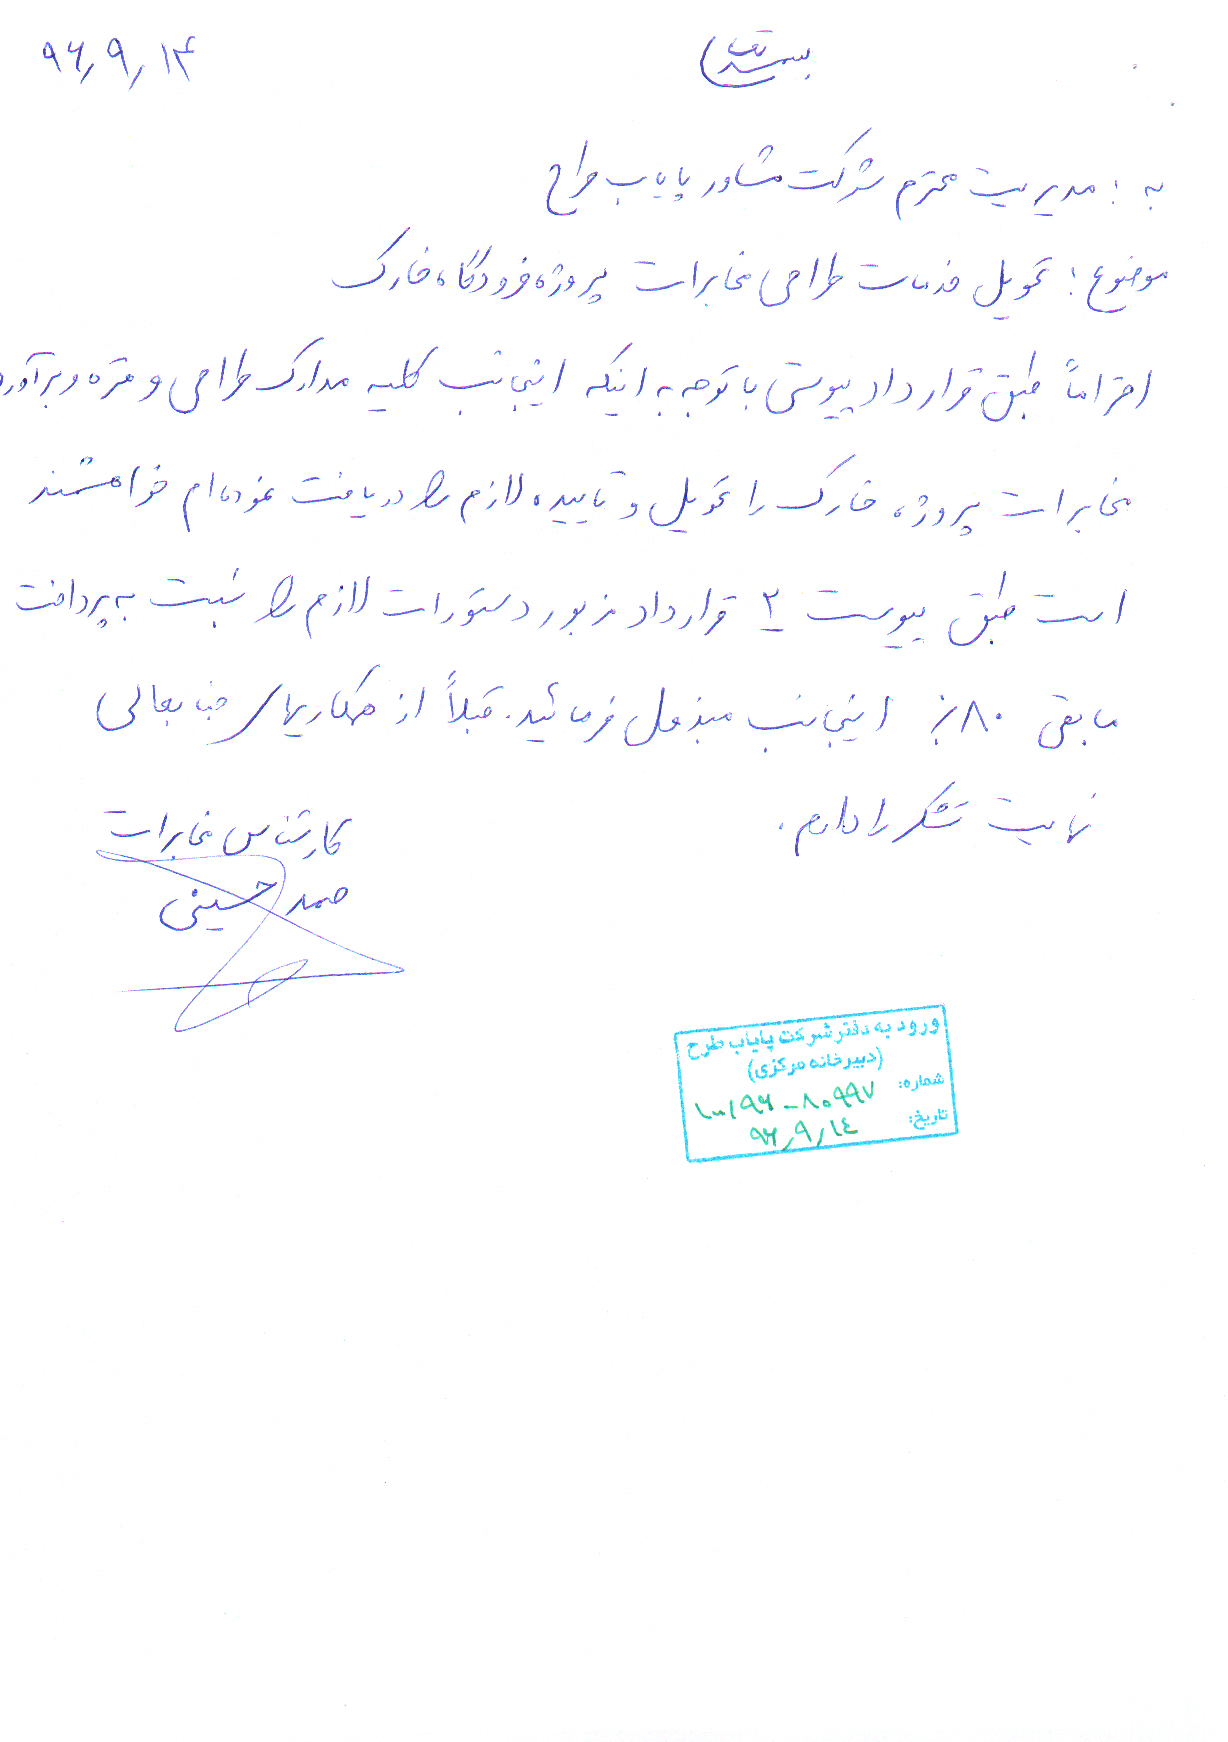 بسمه تعالی
۹۶/۹/۱۴
به : مدیریت محترم شرکت مشاور پایاب طرح
موضوع : تحویل خدمات طراحی مخابرات پروژه فرودگاه خارک
احتراماً طبق قرارداد پیوستی با توجه به اینکه اینجانب کلیه مدارک طراحی و متره و برآورد
مخابرات پروژه خارک را تحویل و تاییده لازم را دریافت نموده‌ام خواهشمند
است طبق پیوست ۲ قرارداد مزبور دستورات لازم را نسبت به پرداخت
مابقی ۸۰٪ اینجانب مبذول فرمائید. قبلاً از همکاریهای جنابعالی
نهایت تشکر را دارم.
کارشناس مخابرات
صمد حسینی
ورود به دفتر شرکت پایاب طرح
(دبیرخانه مرکزی)
شماره: ۱۰۰/۹۶-۸۰۹۹۷
تاریخ: ۹۶/۹/۱۴